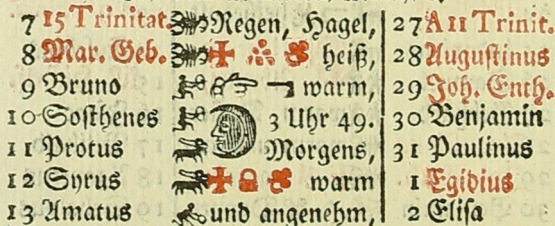 7 15 Trinitat. Regen, Hagel, 27 A 11 Trinit.
8 Mar. Geb. heiß, 28 Augustinus
9 Bruno warm, 29 Joh. Enth.
10 Sosthenes 3 Uhr 49. 30 Benjamin
11 Protus Morgens, 31 Paulinus
12 Syrus warm 1 Egidius
13 Amatus und angenehm, 2 Elisa